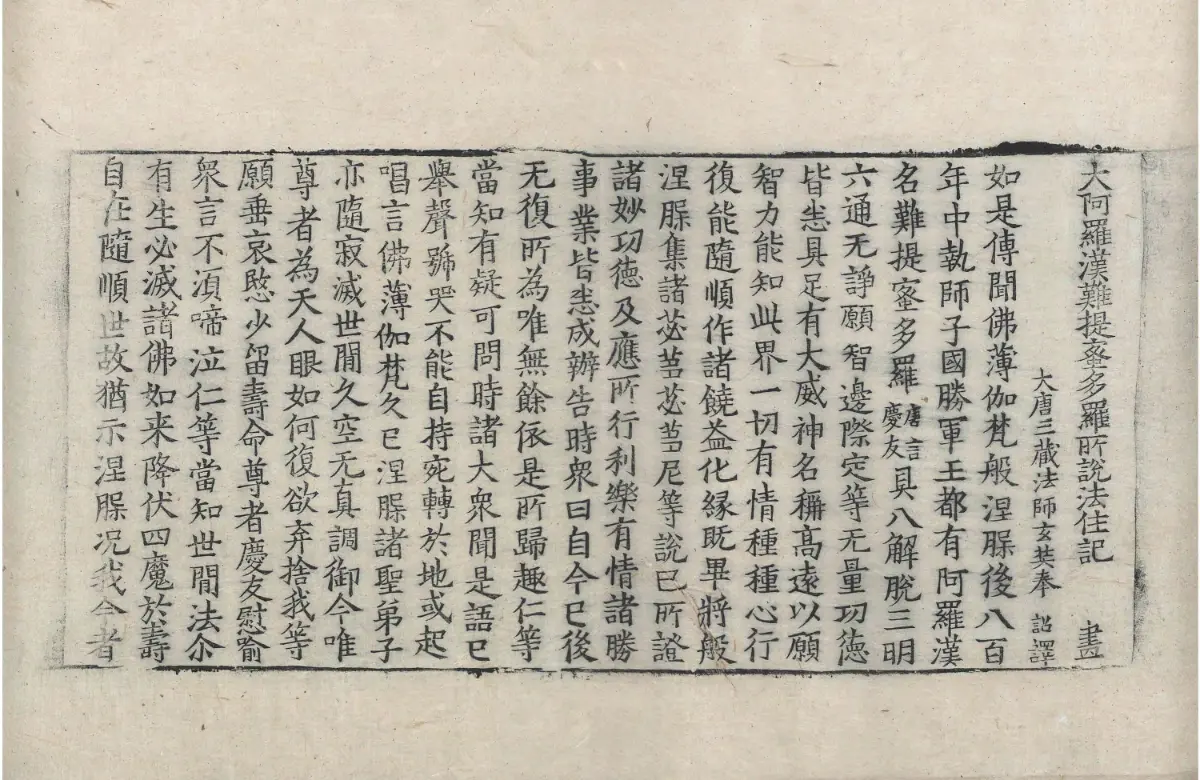 大阿羅漢難提蜜多羅所說法住記 畫
大唐三藏法師玄奘奉 詔譯
如是傳聞佛薄伽梵般涅縣後八百
年中執師子國勝軍王都有阿羅漢
名難提蜜多羅唐言慶友具八解脫三明
六通无諍願智邊際定等无量功德
皆悉具足有大威神名稱高遠以願
智力能知此界一切有情種種心行
復能隨順作諸饒益化緣既畢將般
涅縣集諸苾芻苾芻尼等說已所證
諸妙功德及應所行利樂有情諸勝
事業皆悉成辦告時衆曰自今已後
无復所為唯無餘依是所歸趣仁等
當知有疑可問時諸大衆聞是語已
舉聲號哭不能自持宛轉於地或起
唱言佛薄伽梵久已涅縣諸聖弟子
亦隨寂滅世間久空无真調御今唯
尊者為天人眼如何復欲弃捨我等
願垂哀愍少留壽命尊者慶友慰喻
衆言不湏啼泣仁等當知世間法尒
有生必滅諸佛如来降伏四魔於壽
自在隨順世故猶示涅縣况我今者